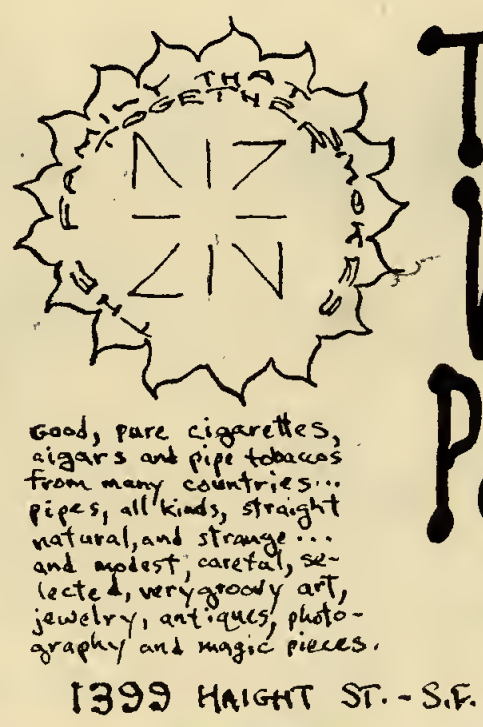 THAT
TOGETHER
Good, pure cigarettes,
aigars and pipe tobaccos
from many countries...
pipes, all kinds, straight
natural, and strange...
and modest, caretal, se-
lected, very groovy art,
jewelry, antiques, photo-
graphy and magic pieces.
1399 HAIGHT ST. - S.F.